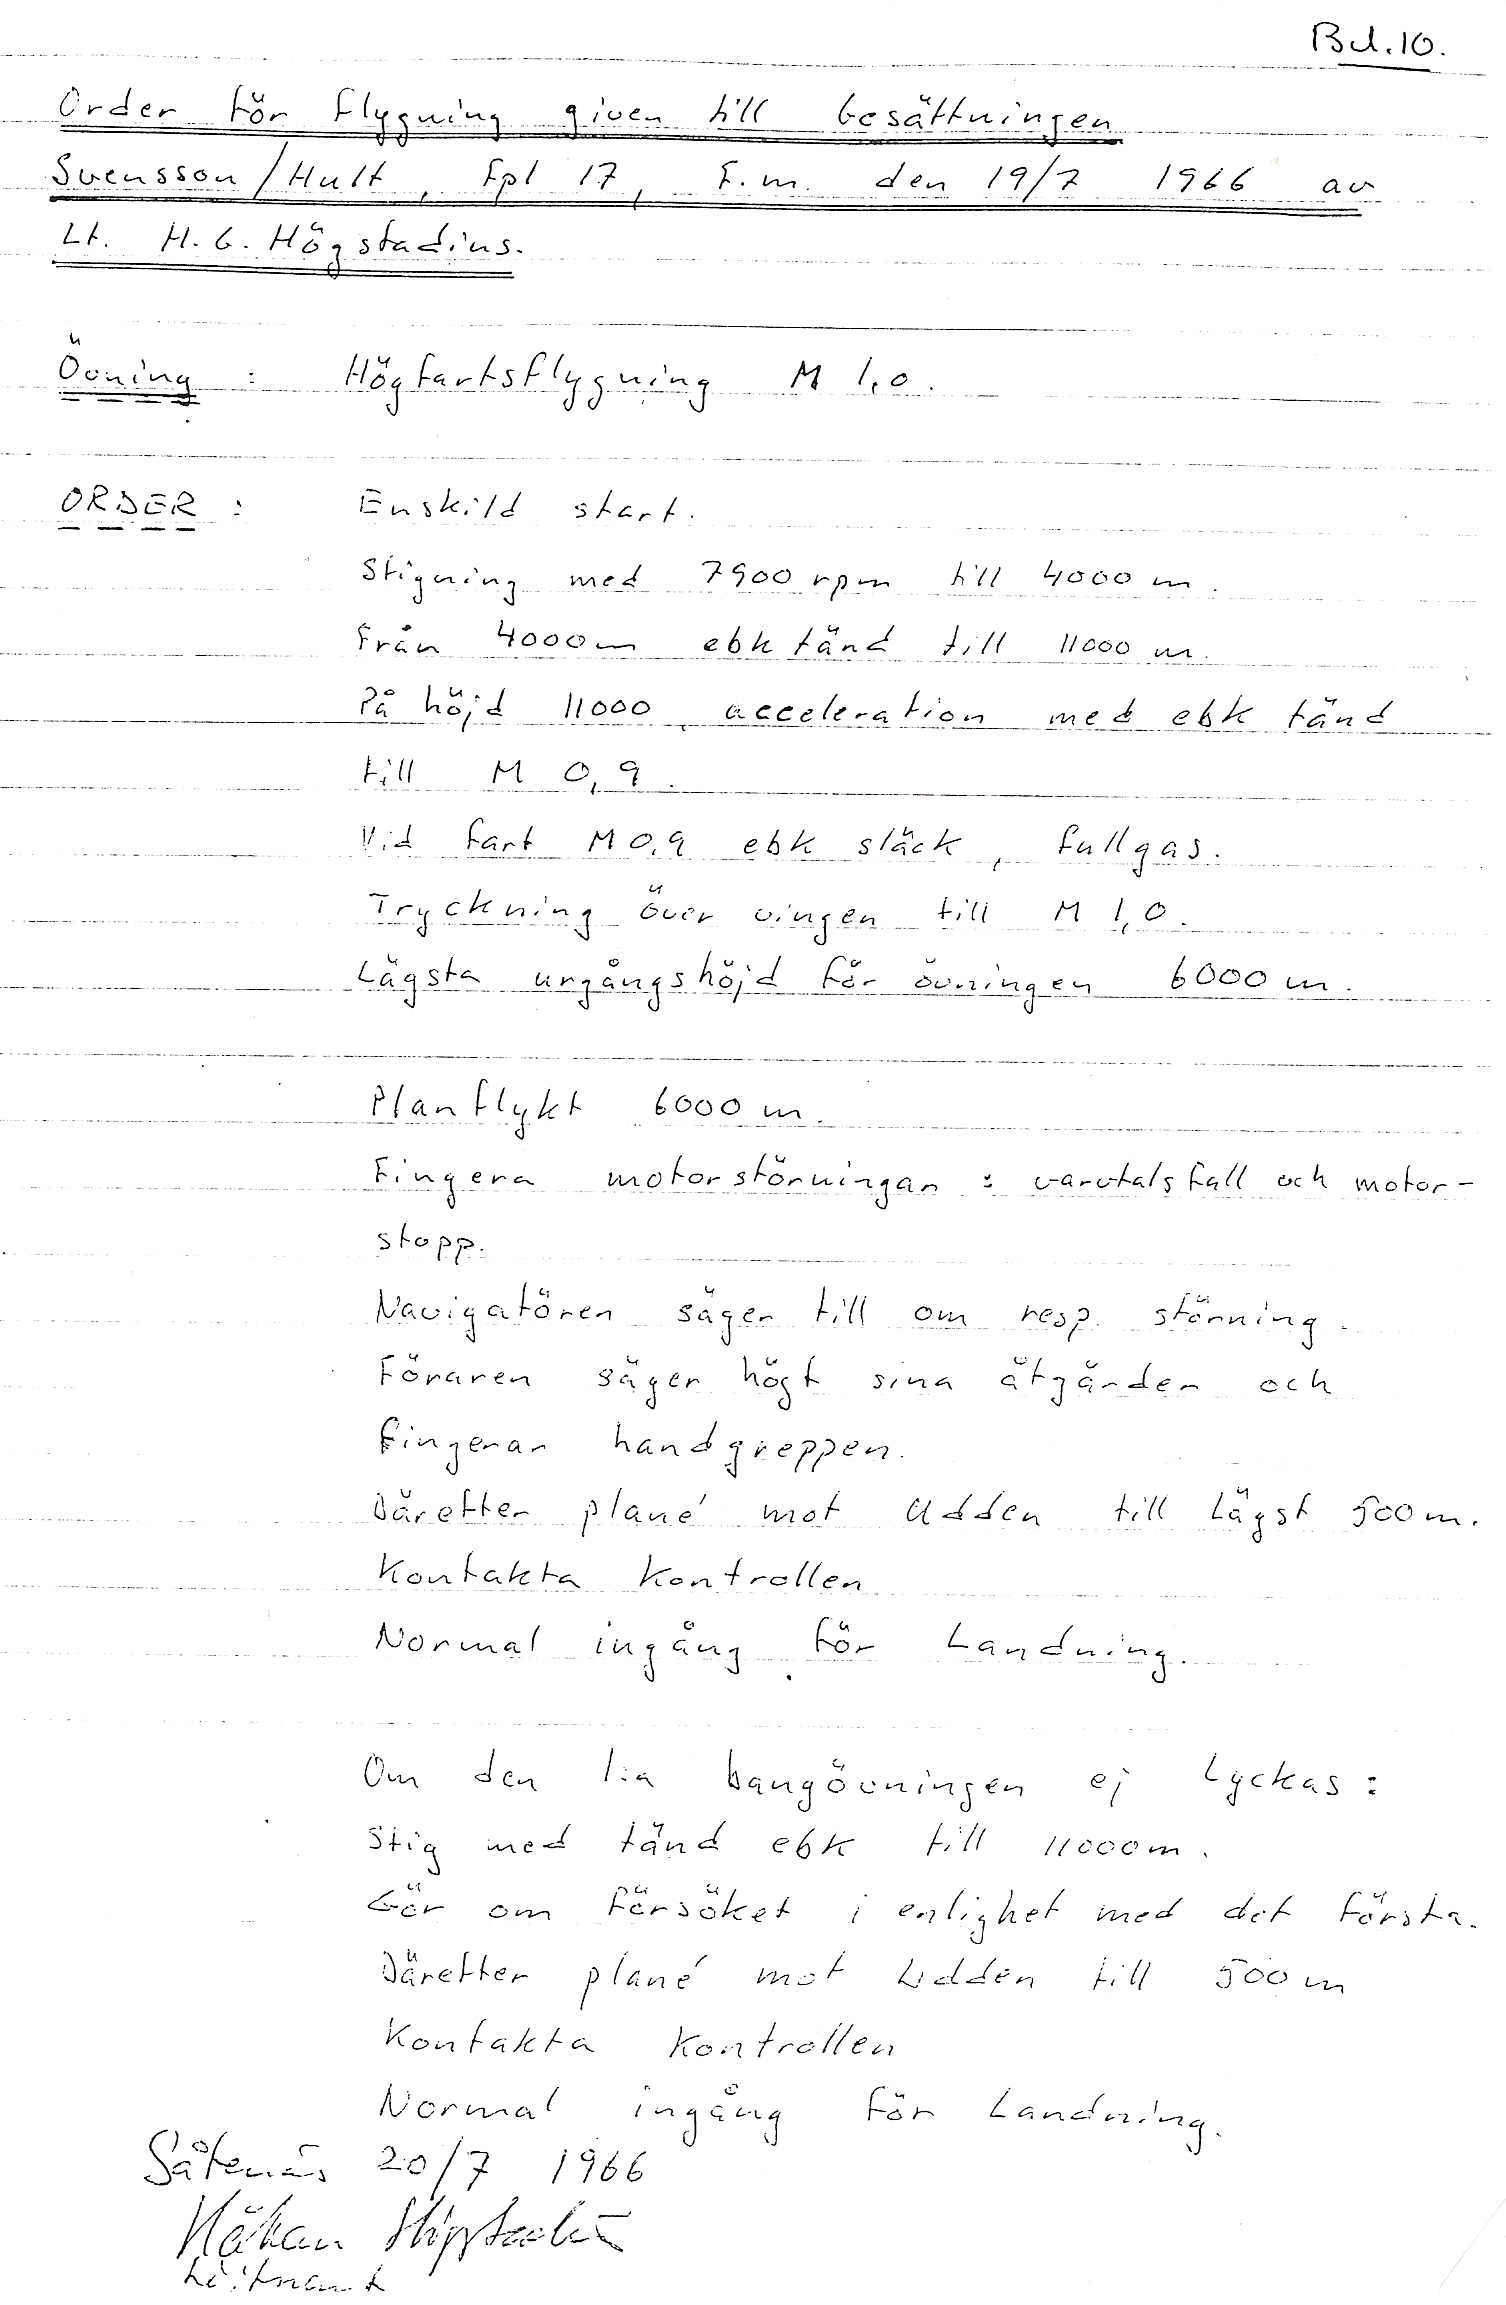 Bil. 10.
Order för flygning given till besättningen
Svensson/Hult, Fpl 17, F.m. den 19/7 1966 av
Lt. H.G. Högstadius.
Övning : Högfartsflygning M 1,0.
ORDER : Enskild start.
Stigning med 7900 rpm till 4000 m.
Från 4000 m ebk tänd till 11000 m.
På höjd 11000, acceleration med ebk tänd
till M 0,9.
Vid fart M 0,9 ebk släck, fullgas.
Tryckning över vingen till M 1,0.
Lägsta urgångshöjd för övningen 6000 m.
Planflykt 6000 m.
Fingera motorstörningar : varvtalsfall och motor-
stopp.
Navigatören säger till om resp. störning.
Föraren säger högt sina åtgärder och
fingerar handgreppen.
Därefter plané mot Udden till lägst 500 m.
Kontakta Kontrollen
Normal ingång för Landning.
Om den 1:a bangövningen ej Lyckas :
Stig med tänd ebk till 11000 m.
Gör om försöket i enlighet med det första.
Därefter plané mot Udden till 500 m
Kontakta Kontrollen
Normal ingång för Landning.
Såtenäs 20/7 1966
Håkan Högstadius
Löjtnant